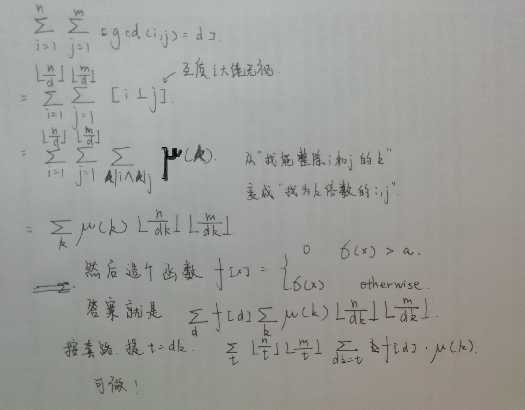 ∑_{i=1}^{n} ∑_{j=1}^{m} [gcd(i,j)=d].
= ∑_{i=1}^{⌊n/d⌋} ∑_{j=1}^{⌊m/d⌋} [i⊥j]. ← 互质
= ∑_{i=1}^{⌊n/d⌋} ∑_{j=1}^{⌊m/d⌋} ∑_{k|i∧k|j} μ(k). 从"找能整除i和j的k"
变成"找为k倍数的i,j".
= ∑_k μ(k) ⌊n/dk⌋ ⌊m/dk⌋
然后造个函数 f[x] = { 0 σ(x) > a. σ(x) otherwise.
答案就是 ∑_d f[d] ∑_k μ(k) ⌊n/dk⌋ ⌊m/dk⌋.
按套路,提 t=dk. ∑_t ⌊n/t⌋ ⌊m/t⌋ ∑_{dk=t} f[d]·μ(k).
可做!